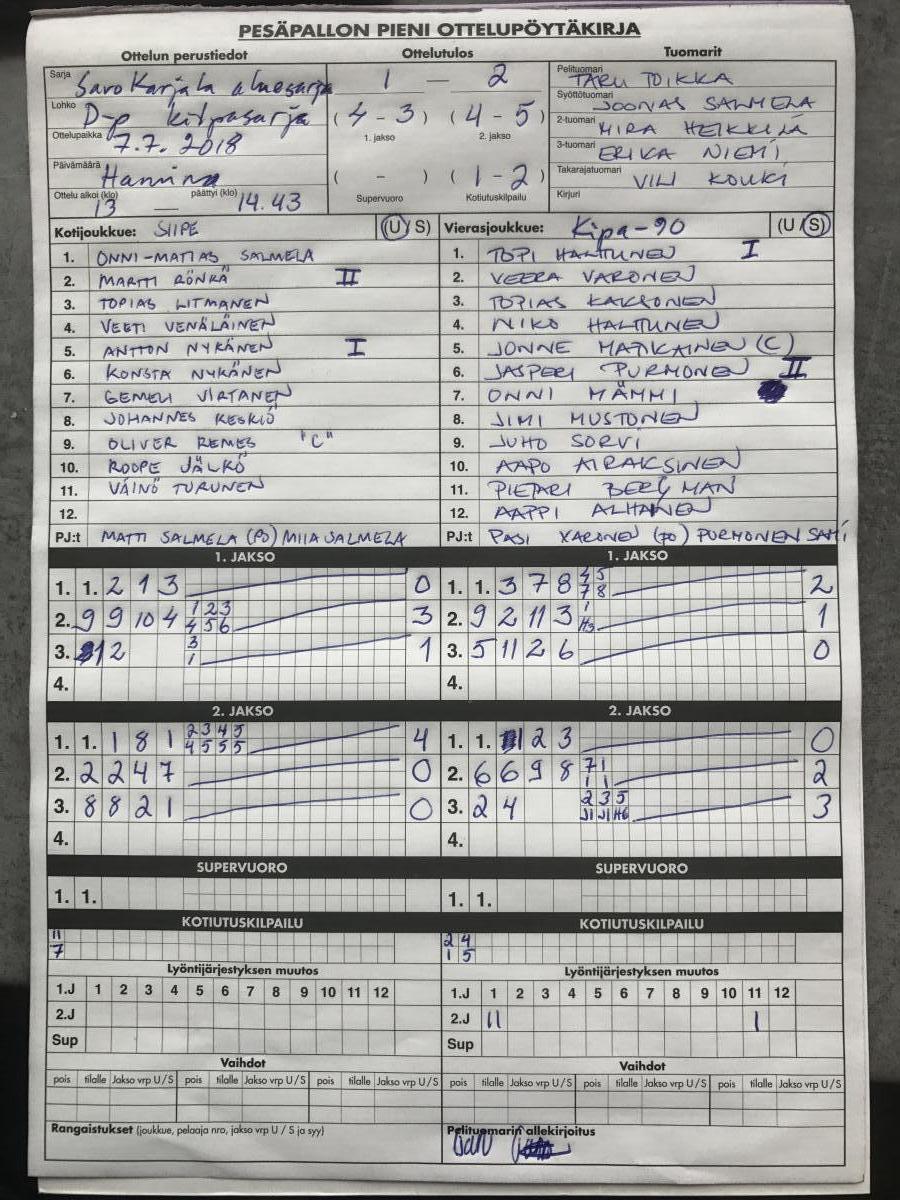 PESÄPALLON PIENI OTTELUPÖYTÄKIRJA
Ottelun perustiedot Ottelutulos Tuomarit
Sarja Savo Karjala aluesarja 1 — 2 Pelituomari TARU TOIKKA
Lohko D-p kilpasarja (4 - 3) (4 - 5) Syöttötuomari JOONAS SALMELA
1. jakso 2. jakso 2-tuomari MIRA HEIKKILÄ
Ottelupaikka 7.7. 2018 3-tuomari ERIKA NIEMI
Päivämäärä Hamina ( - ) (1 - 2) Takarajatuomari VILI KOUKI
Ottelu alkoi (klo) 13 — päättyi (klo) 14.43 Supervuoro Kotiutuskilpailu Kirjuri
Kotijoukkue: SIIPE (U/S) Vierasjoukkue: Kipa-90 (U/S)
1. ONNI-MATIAS SALMELA 1. TOPI HALTTUNEN I
2. MARTTI RÖNKÄ II 2. VEERA VARONEN
3. TOPIAS LITMANEN 3. TOPIAS KAKSONEN
4. VEETI VENÄLÄINEN 4. NIKO HALTTUNEN
5. ANTTON NYKÄNEN I 5. JONNE MATIKAINEN (C)
6. KONSTA NYKÄNEN 6. JASPERI PURMONEN II
7. GEMELI VIRTANEN 7. ONNI MÄMMI
8. JOHANNES KESKIÖ 8. JIMI MUSTONEN
9. OLIVER REMES "C" 9. JUHO SORVI
10. ROOPE JÄLKÖ 10. AAPO AIRAKSINEN
11. VÄINÖ TURUNEN 11. PIETARI BERGMAN
12. 12. AAPPI ALHAINEN
PJ:t MATTI SALMELA (PJ) MIIA SALMELA PJ:t PASI VARONEN (PJ) PURMONEN SAMI
1. JAKSO 1. JAKSO
1. 1. 2 1 3 0 1. 1. 3 7 8 4 5 2
7 8
2. 9 9 10 4 1 2 3 3 2. 9 2 11 3 1 1
4 5 6 H3
3. 12 3 1 3. 5 11 2 6 0
1
4. 4.
2. JAKSO 2. JAKSO
1. 1. 1 8 1 2 3 4 5 4 1. 1. 1 2 3 0
4 5 5 5
2. 2 2 4 7 0 2. 6 6 9 8 7 1 2
1 1
3. 8 8 2 1 0 3. 2 4 2 3 5 3
J1 J1 H6
4. 4.
SUPERVUORO SUPERVUORO
1. 1. 1. 1.
KOTIUTUSKILPAILU KOTIUTUSKILPAILU
11 2 4
7 1 5
Lyöntijärjestyksen muutos Lyöntijärjestyksen muutos
1.J 1 2 3 4 5 6 7 8 9 10 11 12 1.J 1 2 3 4 5 6 7 8 9 10 11 12
2.J 2.J 11 1
Sup Sup
Vaihdot Vaihdot
pois tilalle Jakso vrp U/S pois tilalle Jakso vrp U/S pois tilalle Jakso vrp U/S pois tilalle Jakso vrp U/S pois tilalle Jakso vrp U/S pois tilalle Jakso vrp U/S
Rangaistukset (joukkue, pelaaja nro, jakso vrp U / S ja syy) Pelituomarin allekirjoitus